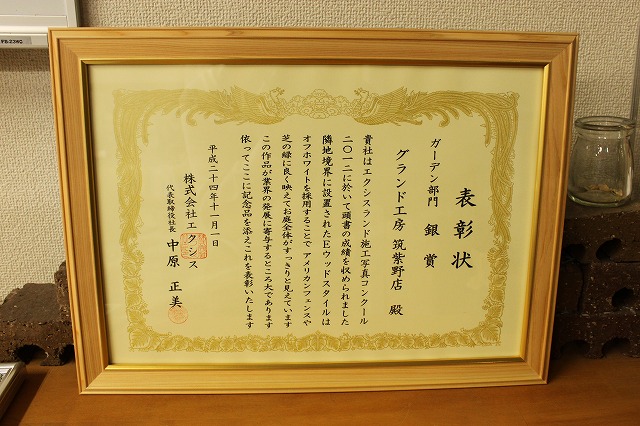 表彰状
ガーデン部門 銀賞
グランド工房 筑紫野店 殿
貴社はエクシスランド施工写真コンクール
二〇一二に於いて頭書の成績を収められました
隣地境界に設置されたEウッドスタイルは
オフホワイトを採用することで アメリカンフェンスや
芝の緑に良く映えてお庭全体がすっきりと見えています
この作品が業界の発展に寄与するところ大であります
依ってここに記念品を添えこれを表彰いたします
平成二十四年十一月一日
株式会社エクシス
代表取締役社長 中原 正美